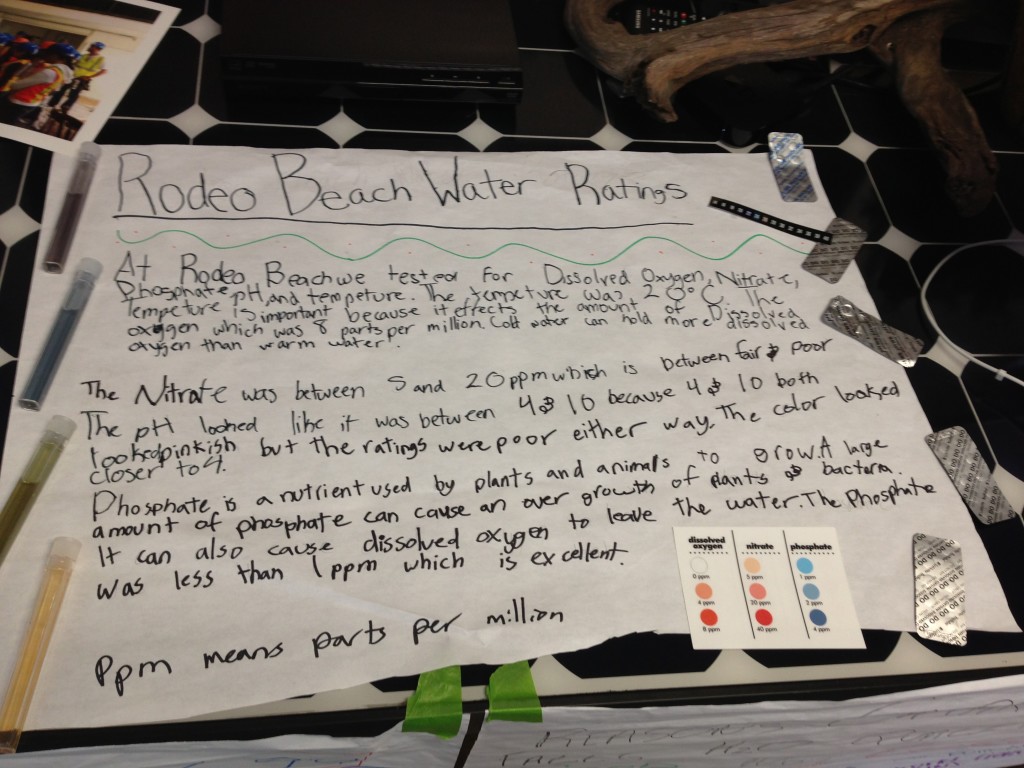 Rodeo Beach Water Ratings
At Rodeo Beach we tested for Dissolved Oxygen, Nitrate,
Phosphate pH, and tempeture. The tempeture was 20°C. The
Tempeture is important because it effects the amount of Dissolved
oxygen which was 8 parts per million. Cold water can hold more dissolved
oxygen than warm water!
The Nitrate was between 5 and 20 ppm which is between fair & poor
The pH looked like it was between 4 & 10 because 4 & 10 both
looked pinkish but the ratings were poor either way. The color looked
closer to 4.
Phosphate is a nutrient used by plants and animals to grow. A large
amount of phosphate can cause an over growth of plants & bacteria.
It can also cause dissolved oxygen to leave the water. The Phosphate
was less than 1 ppm which is excellent.
Ppm means parts per million
dissolved oxygen nitrate phosphate
0 ppm 5 ppm 1 ppm
4 ppm 20 ppm 2 ppm
8 ppm 40 ppm 4 ppm